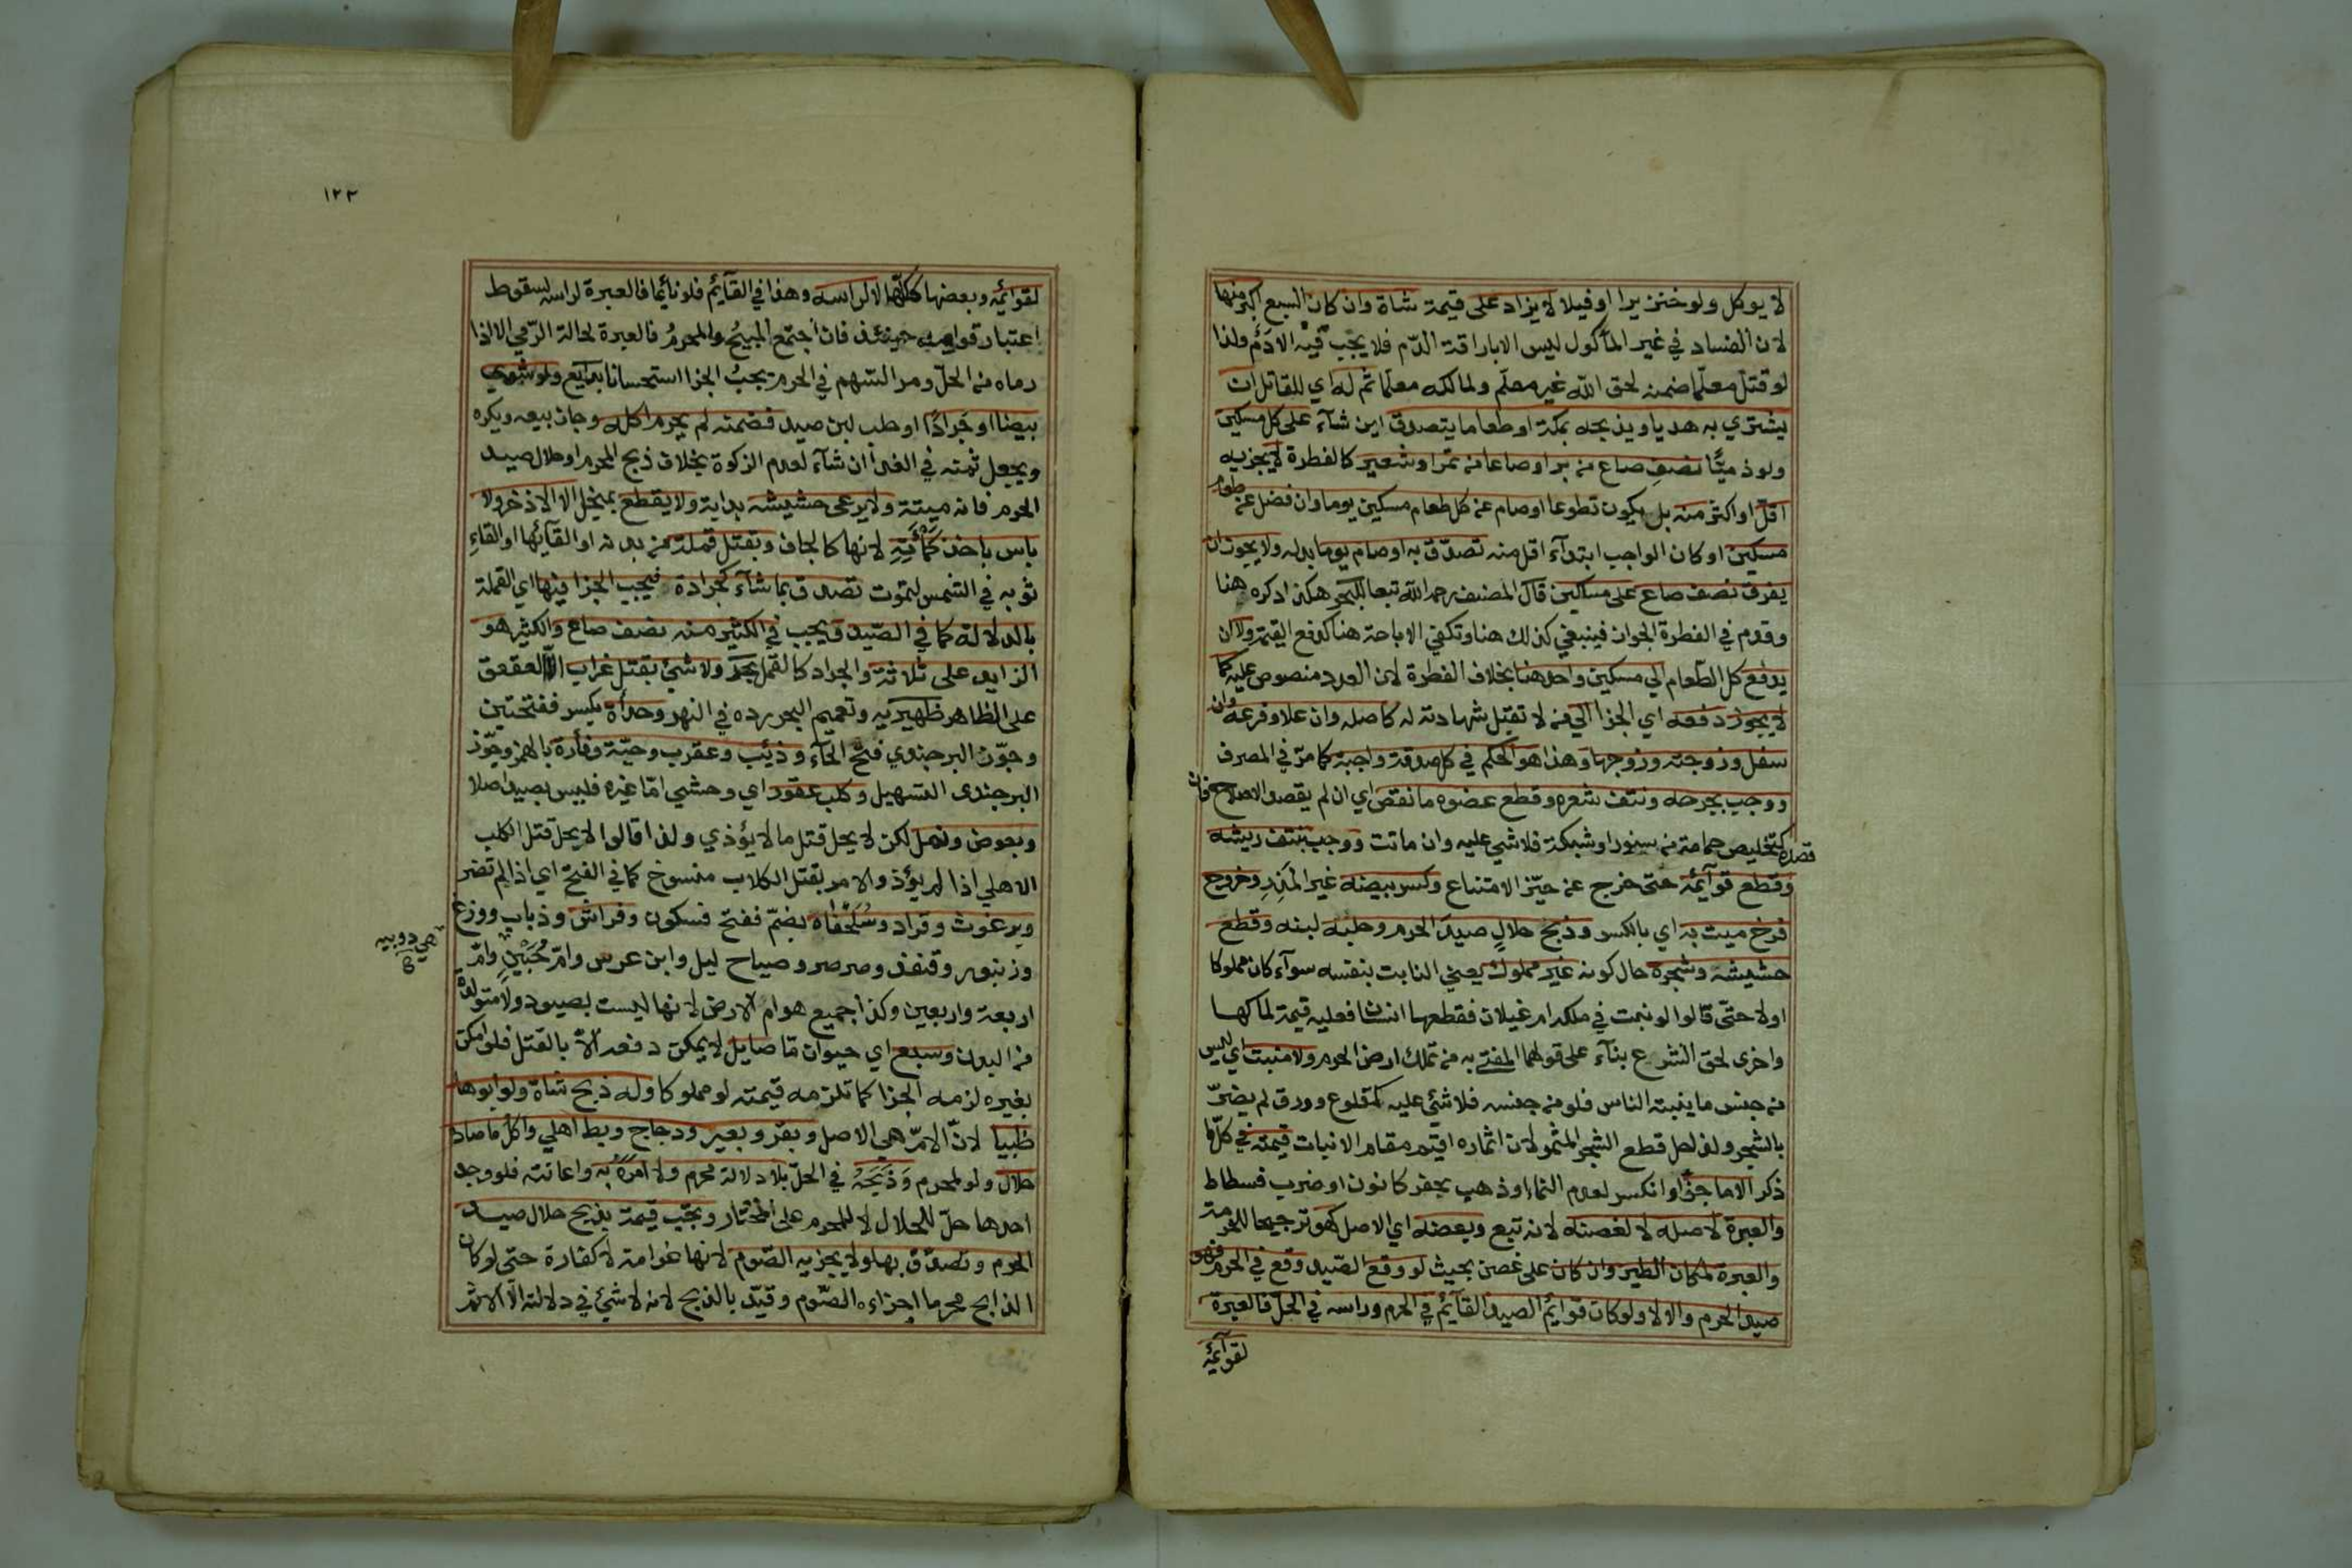 لا يوكل ولو خنزيرا او فيلا لا يزاد على قيمة شاة وان كان السبع اكبر منها
لان الفساد في غير المأكول ليس الا باراقة الدّم فلا يجب فيه الا دَمٌ ولذا
لو قتل معلّما ضمنه لحق الله غير معلّم ولمالكه معلّما ثم له اي للقاتل ان
يشتري به هديا ويذبحه بمكة او طعاما يتصدق اين شآء على كل مسكين
ولو ذميًّا نصف صاع من بر او صاعا من تمر او شعير كالفطرة لا يجزيه
اقلّ او اكثر منه بل يكون تطوعا او صام عن كل طعام مسكين يوما وان فضل عن طعام
مسكين او كان الواجب ابتدآء اقل منه تصدّق به او صام يوما بدله ولا يجوز ان
يفرق نصف صاع على مساكين قال المصنف رحمه الله تبعا للبحر هكذا ذكره هنا
وقدم في الفطرة الجواز فينبغي كذلك هنا وتكفي الاباحة هنا كدفع القيمة ولا ان
يدفع كل الطّعام الي مسكين واحد هنا بخلاف الفطرة لان العدد منصوص عليه كما
لا يجوز دفعه اي الجزا الي من لا تقبل شهادته له كاصله وان علا وفرعه وان
سفل وزوجته وزوجها وهذا هو الحكم في كل صدقة واجبة كما مرّ في المصرف
ووجب بجرحه ونتف شعره وقطع عضوه ما نقص اي ان لم يقصد الاصلاح فان
قصده كتخليص حمامة من سنور او شبكة فلا شي عليه وان ماتت ووجب بنتف ريشه
وقطع قوآئمه حتى خرج عن حيّز الامتناع وكسر بيضه غير المَذِرِ وخروج
فرخ ميت به اي بالكسر وذبح حلالٍ صيدَ الحرم وحلبه لبنه وقطع
حشيشه وشجره حال كونه غير مملوك يعني النابت بنفسه سوآء كان مملوكا
او لا حتّى قالوا لو نبت في ملكه ام غيلان فقطعها انسان فعليه قيمة لمالكها
واخرى لحق الشرع بنآء على قولهما المفتي به من تملك ارض الحرم ولا منبت اي ليس
من جنس ما ينبته الناس فلو من جنسه فلا شئي عليه كمقلوع وورق لم يضرّ
بالشجر ولذا حل قطع الشجر المثمر لان اثماره اقيم مقام الانبات قيمته في كلّ ما
ذكر الا ما جفّ او انكسر لعدم النماء او ذهب بحفر كانون او ضرب فسطاط
والعبرة لاصله لا لغصنه لانه تبع وبعضه اي الاصل كهو ترجيحا للحرمة
والعبرة لمكان الطير وان كان على غصن بحيث لو وقع الصّيد وقع في الحرم فهو
صيد الحرم والا لا ولو كان قوائم الصيد القآئم في الحرم وراسه في الحلّ فالعبرة
لقوآئمه
١٢٣
لقوائمه وبعضها ككلّها لا لراسه وهذا في القآيم فلو نآئما فالعبرة لراسه لسقوط
اعتبار قوايمه حينئذ فان اجتمع المبيحُ والمحرمُ فالعبرة لحالة الرّمي الا اذا
رماه من الحلّ ومر السّهم في الحرم يجبُ الجزا استحسانا بدايع ولو شوي
بيضا او جَرادًا او حلب لبن صيد فضمنه لم يحرم اكله وجاز بيعه ويكره
ويجعل ثمنه في الفدأ ان شآء لعدم الزكوة بخلاف ذبح المحرم او حلال صيد
الحرم فانه ميتة ولا يرعى حشيشه بداية ولا يقطع بمنجل الا الاذخر ولا
باس باخذ كَمْأَتِه لانها كالجاف وبقتل قملة من بدنه او القآئها او القاءِ
ثوبه في الشمس لتموت تصدق بما شآء كجرادة فيجب الجزا فيها اي القملة
بالدلالة كما في الصّيد ويجب في الكثير منه نصف صاع والكثير هو
الزايد على ثلاثة والجراد كالقمل بحر ولا شئ بقتل غراب الا العقعق
على الظاهر ظهيريه وتعميم البحر رده في النهر وحدأة بكسر ففتحتين
وجوّز البرجندي فتح الحآء وذئب وعقرب وحيّة وفأرة بالهمز وجوّز
البرجندى التسهيل وكلب عقور اي وحشي امّا غيره فليس بصيد اصلا
وبعوض ونمل لكن لا يحل قتل ما لا يؤذي ولذا قالوا لا يحل قتل الكلب
الاهلي اذا لم يؤذ والامر بقتل الكلاب منسوخ كما في الفتح اي اذا لم تضر
وبرغوث وقراد وسُلَحْفَاه بضمّ ففتح فسكون وفراش وذباب ووزغ
وزنبور وقنفذ وصرصر وصياح ليل وابن عرس وامّ حُبَيْنٍ وامّ
هي دويبه
اربعة واربعين وكذا جميع هوام الارض لانها ليست بصيود ولا متولدة
من البدن وسبع اي حيوان مّا صايل لا يمكن دفعه الّا بالقتل فلو امكن
بغيره لزمه الجزا كما تلزمه قيمته لو مملوكا وله ذبح شاة ولو ابوها
ظبيا لانّ الامّ هي الاصل وبقر وبعير ودجاج وبط اهلي واكل ما صاد
حلال ولو لمحرم وَذَبَحَهُ في الحلّ بلا دلالة محرم ولا امرَهُ به واعانته فلو وجد
احدها حلّ للحلال لا للمحرم على المختار وتجب قيمة بذبح حلال صيد
الحرم وتصدّق بها ولا يجزيه الصّوم لانها غرامة لا كفارة حتى لو كان
الذابح محرما اجزاءه الصّوم وقيّد بالذبح لانه لا شئ في دلالته الّا الاثم